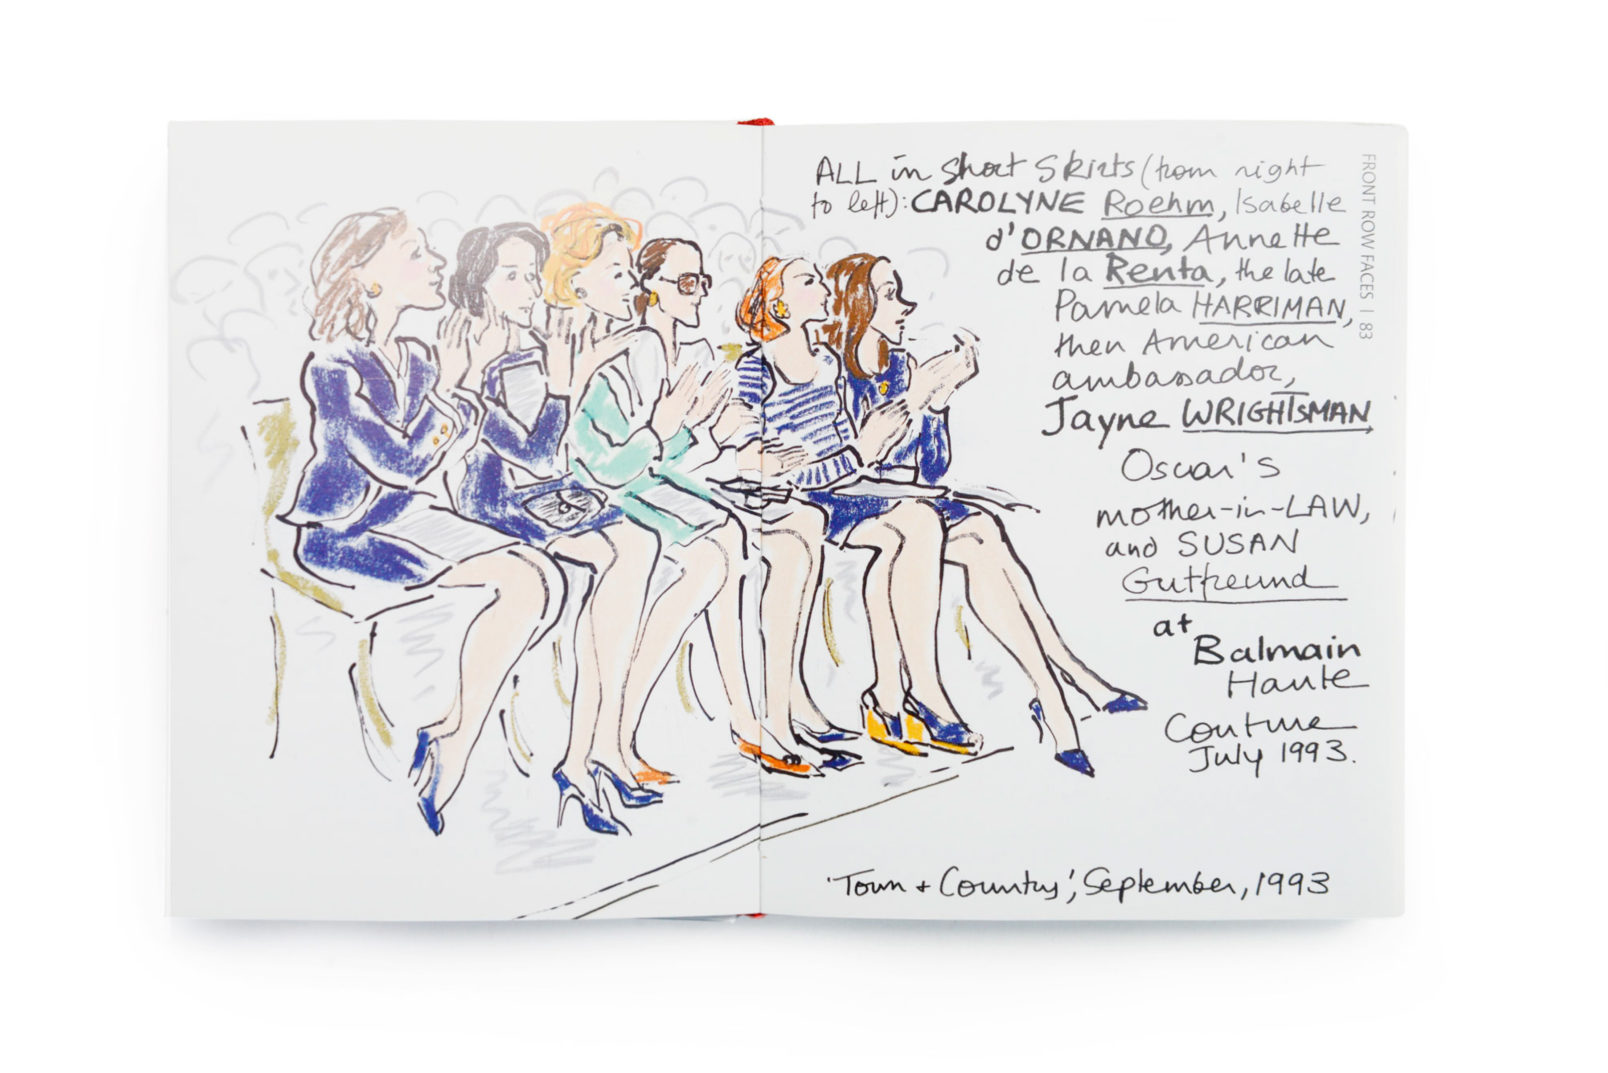 ALL in Short Skirts (from right
to left): CAROLYNE Roehm, Isabelle
d'ORNANO, Annette
de la Renta, the late
Pamela HARRIMAN,
then American
ambassador,
Jayne WRIGHTSMAN,
Oscar's
mother-in-LAW,
and SUSAN
Gutfreund
at
Balmain
Haute
Couture
July 1993.
'Town + Country', September, 1993
FRONT ROW FACES | 83